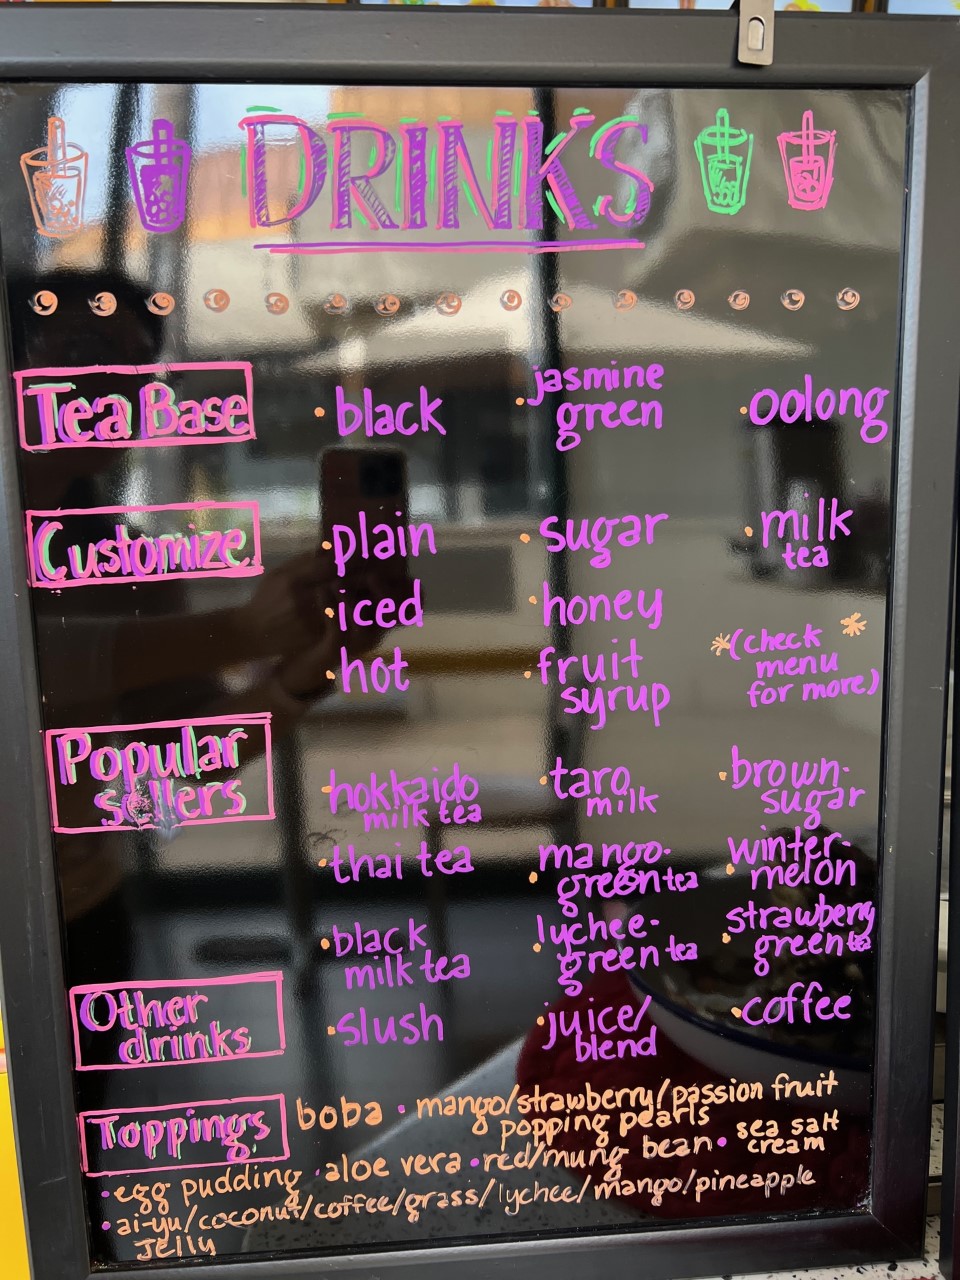 DRINKS
Tea Base
• black
• jasmine
green
• oolong
Customize
• plain
• sugar
• milk
tea
• iced
• honey
• hot
• fruit
syrup
*(check *
menu
for more)
Popular
sellers
• hokkaido
milk tea
• taro
milk
• brown-
sugar
• thai tea
• mango-
green tea
• winter-
melon
• black
milk tea
• lychee-
green tea
• strawberry
green tea
Other
drinks
• slush
• juice/
blend
• coffee
Toppings
boba • mango/strawberry/passion fruit
popping pearls
• egg pudding • aloe vera • red/mung bean • sea salt
cream
• ai-yu/coconut/coffee/grass/lychee/mango/pineapple
Jelly